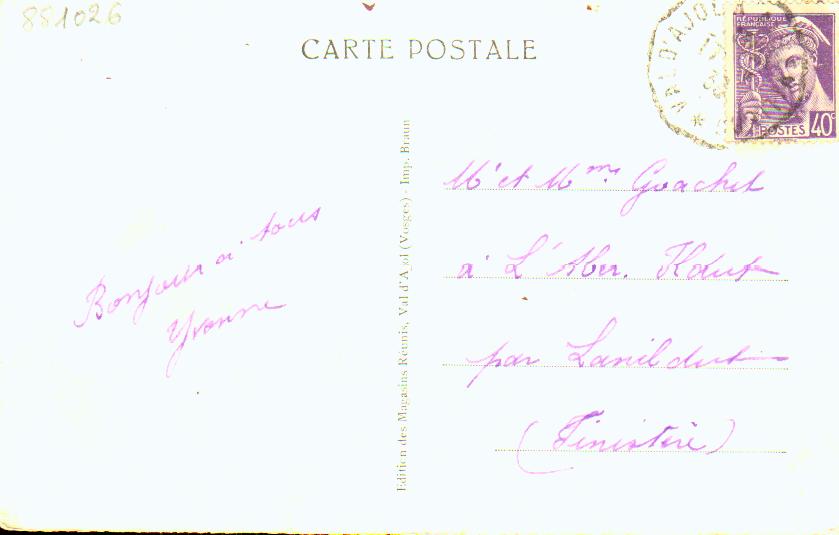 881026
CARTE POSTALE
VAL D'AJOL
RÉPUBLIQUE
FRANÇAISE
POSTES 40c
Bonjour à tous
Yvonne
Edition des Magasins Réunis, Val d'Ajol (Vosges) - Imp. Braun
Mr et Mme Goachet
à L'Aber.
par Lanildut
(Finistère)